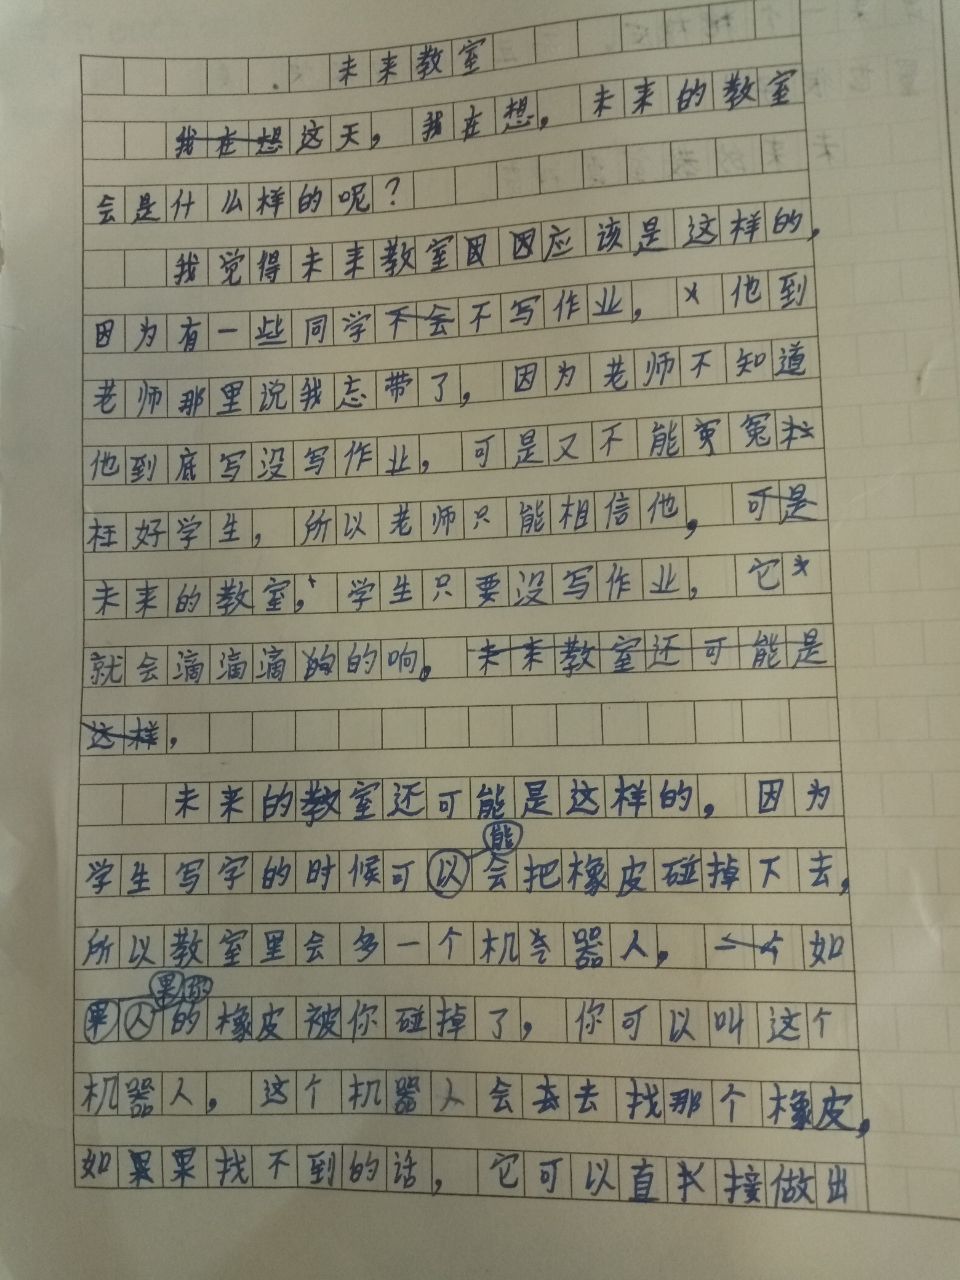 未来教室
我在想这天，我在想，未来的教室
会是什么样的呢？
我觉得未来教室因因应该是这样的，
因为有一些同学不会不写作业，他到
老师那里说我忘带了，因为老师不知道
他到底写没写作业，可是又不能冤冤枉
枉好学生，所以老师只能相信他，可是
未来的教室，学生只要没写作业，它
就会滴滴滴的的响。未来教室还可能是
这样，
未来的教室还可能是这样的，因为
能
学生写字的时候可以会把橡皮碰掉下去，
所以教室里会多一个机器人，一个如
果你
果的橡皮被你碰掉了，你可以叫这个
机器人，这个机器人会去去找那个橡皮，
如果果找不到的话，它可以直接做出